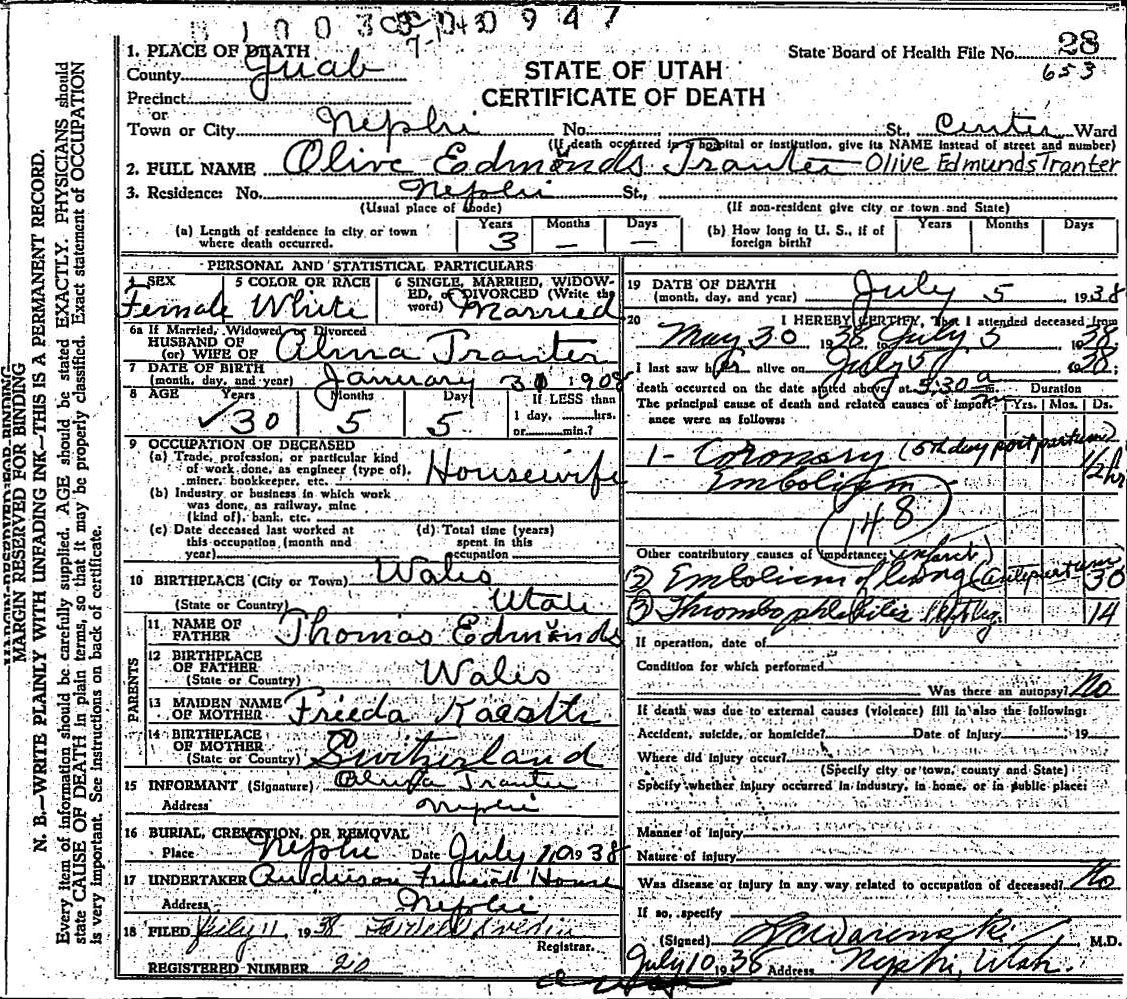 7-1
28
653
1. PLACE OF DEATH
County Juab
STATE OF UTAH
State Board of Health File No.
Precinct
CERTIFICATE OF DEATH
or
Town or City Nephi No. St., Center Ward
(If death occurred in a hospital or institution, give its NAME instead of street and number)
2. FULL NAME Olive Edmunds Tranter Olive Edmunds Tranter
3. Residence: No. Nephi St.,
(Usual place of abode) (If non-resident give city or town and State)
(a) Length of residence in city or town where death occurred. Years 3 Months — Days —
(b) How long in U. S., if of foreign birth? Years Months Days
PERSONAL AND STATISTICAL PARTICULARS
4 SEX Female
5 COLOR OR RACE White
6 SINGLE, MARRIED, WIDOWED, or DIVORCED (Write the word) Married
6a If Married, Widowed or Divorced
HUSBAND OF
(or) WIFE OF Alma Tranter
7 DATE OF BIRTH
(month, day, and year) January 1908
8 AGE Years 30 Months 5 Days 5
If LESS than
1 day, hrs.
or min.?
9 OCCUPATION OF DECEASED
(a) Trade, profession, or particular kind
of work done, as engineer (type of),
miner, bookkeeper, etc. Housewife
(b) Industry or business in which work
was done, as railway, mine
(kind of), bank, etc.
(c) Date deceased last worked at
this occupation (month and
year)
(d) Total time (years)
spent in this
occupation
10 BIRTHPLACE (City or Town) Wales
(State or Country) Utah
PARENTS
11 NAME OF
FATHER Thomas Edmunds
12 BIRTHPLACE
OF FATHER
(State or Country) Wales
13 MAIDEN NAME
OF MOTHER Frieda
14 BIRTHPLACE
OF MOTHER
(State or Country) Switzerland
15 INFORMANT (Signature) Tranter
Address Nephi
16 BURIAL, CREMATION, OR REMOVAL
Place Nephi Date July 10 1938
17 UNDERTAKER Anderson Funeral House
Address Nephi
18 FILED July 11 1938
Registrar.
REGISTERED NUMBER 20
19 DATE OF DEATH
(month, day, and year) July 5 1938
20 I HEREBY CERTIFY, That I attended deceased from
May 30 1938 to July 5 1938;
I last saw her alive on July 5 1938;
death occurred on the date stated above, at 5:30 a m.
Duration
The principal cause of death and related causes of importance were as follows:
Yrs. Mos. Ds.
1- Coronary (5th day post partum)
Embolism 1/2 hr
148
Other contributory causes of importance: infarct)
2) Embolism of lung (antepartum 30
3) Thrombophlebitis left leg. 14
If operation, date of
Condition for which performed
Was there an autopsy? No
If death was due to external causes (violence) fill in also the following:
Accident, suicide, or homicide? Date of injury 19
Where did injury occur?
(Specify city or town, county and State)
Specify whether injury occurred in industry, in home, or in public place:
Manner of injury
Nature of injury
Was disease or injury in any way related to occupation of deceased? No
If so, specify
(Signed) M.D.
July 10 1938 Address Nephi, Utah.
MARGIN RESERVED FOR BINDING
N. B.—WRITE PLAINLY WITH UNFADING INK—THIS IS A PERMANENT RECORD.
Every item of information should be carefully supplied. AGE should be stated EXACTLY. PHYSICIANS should
state CAUSE OF DEATH in plain terms, so that it may be properly classified. Exact statement of OCCUPATION
is very important. See instructions on back of certificate.